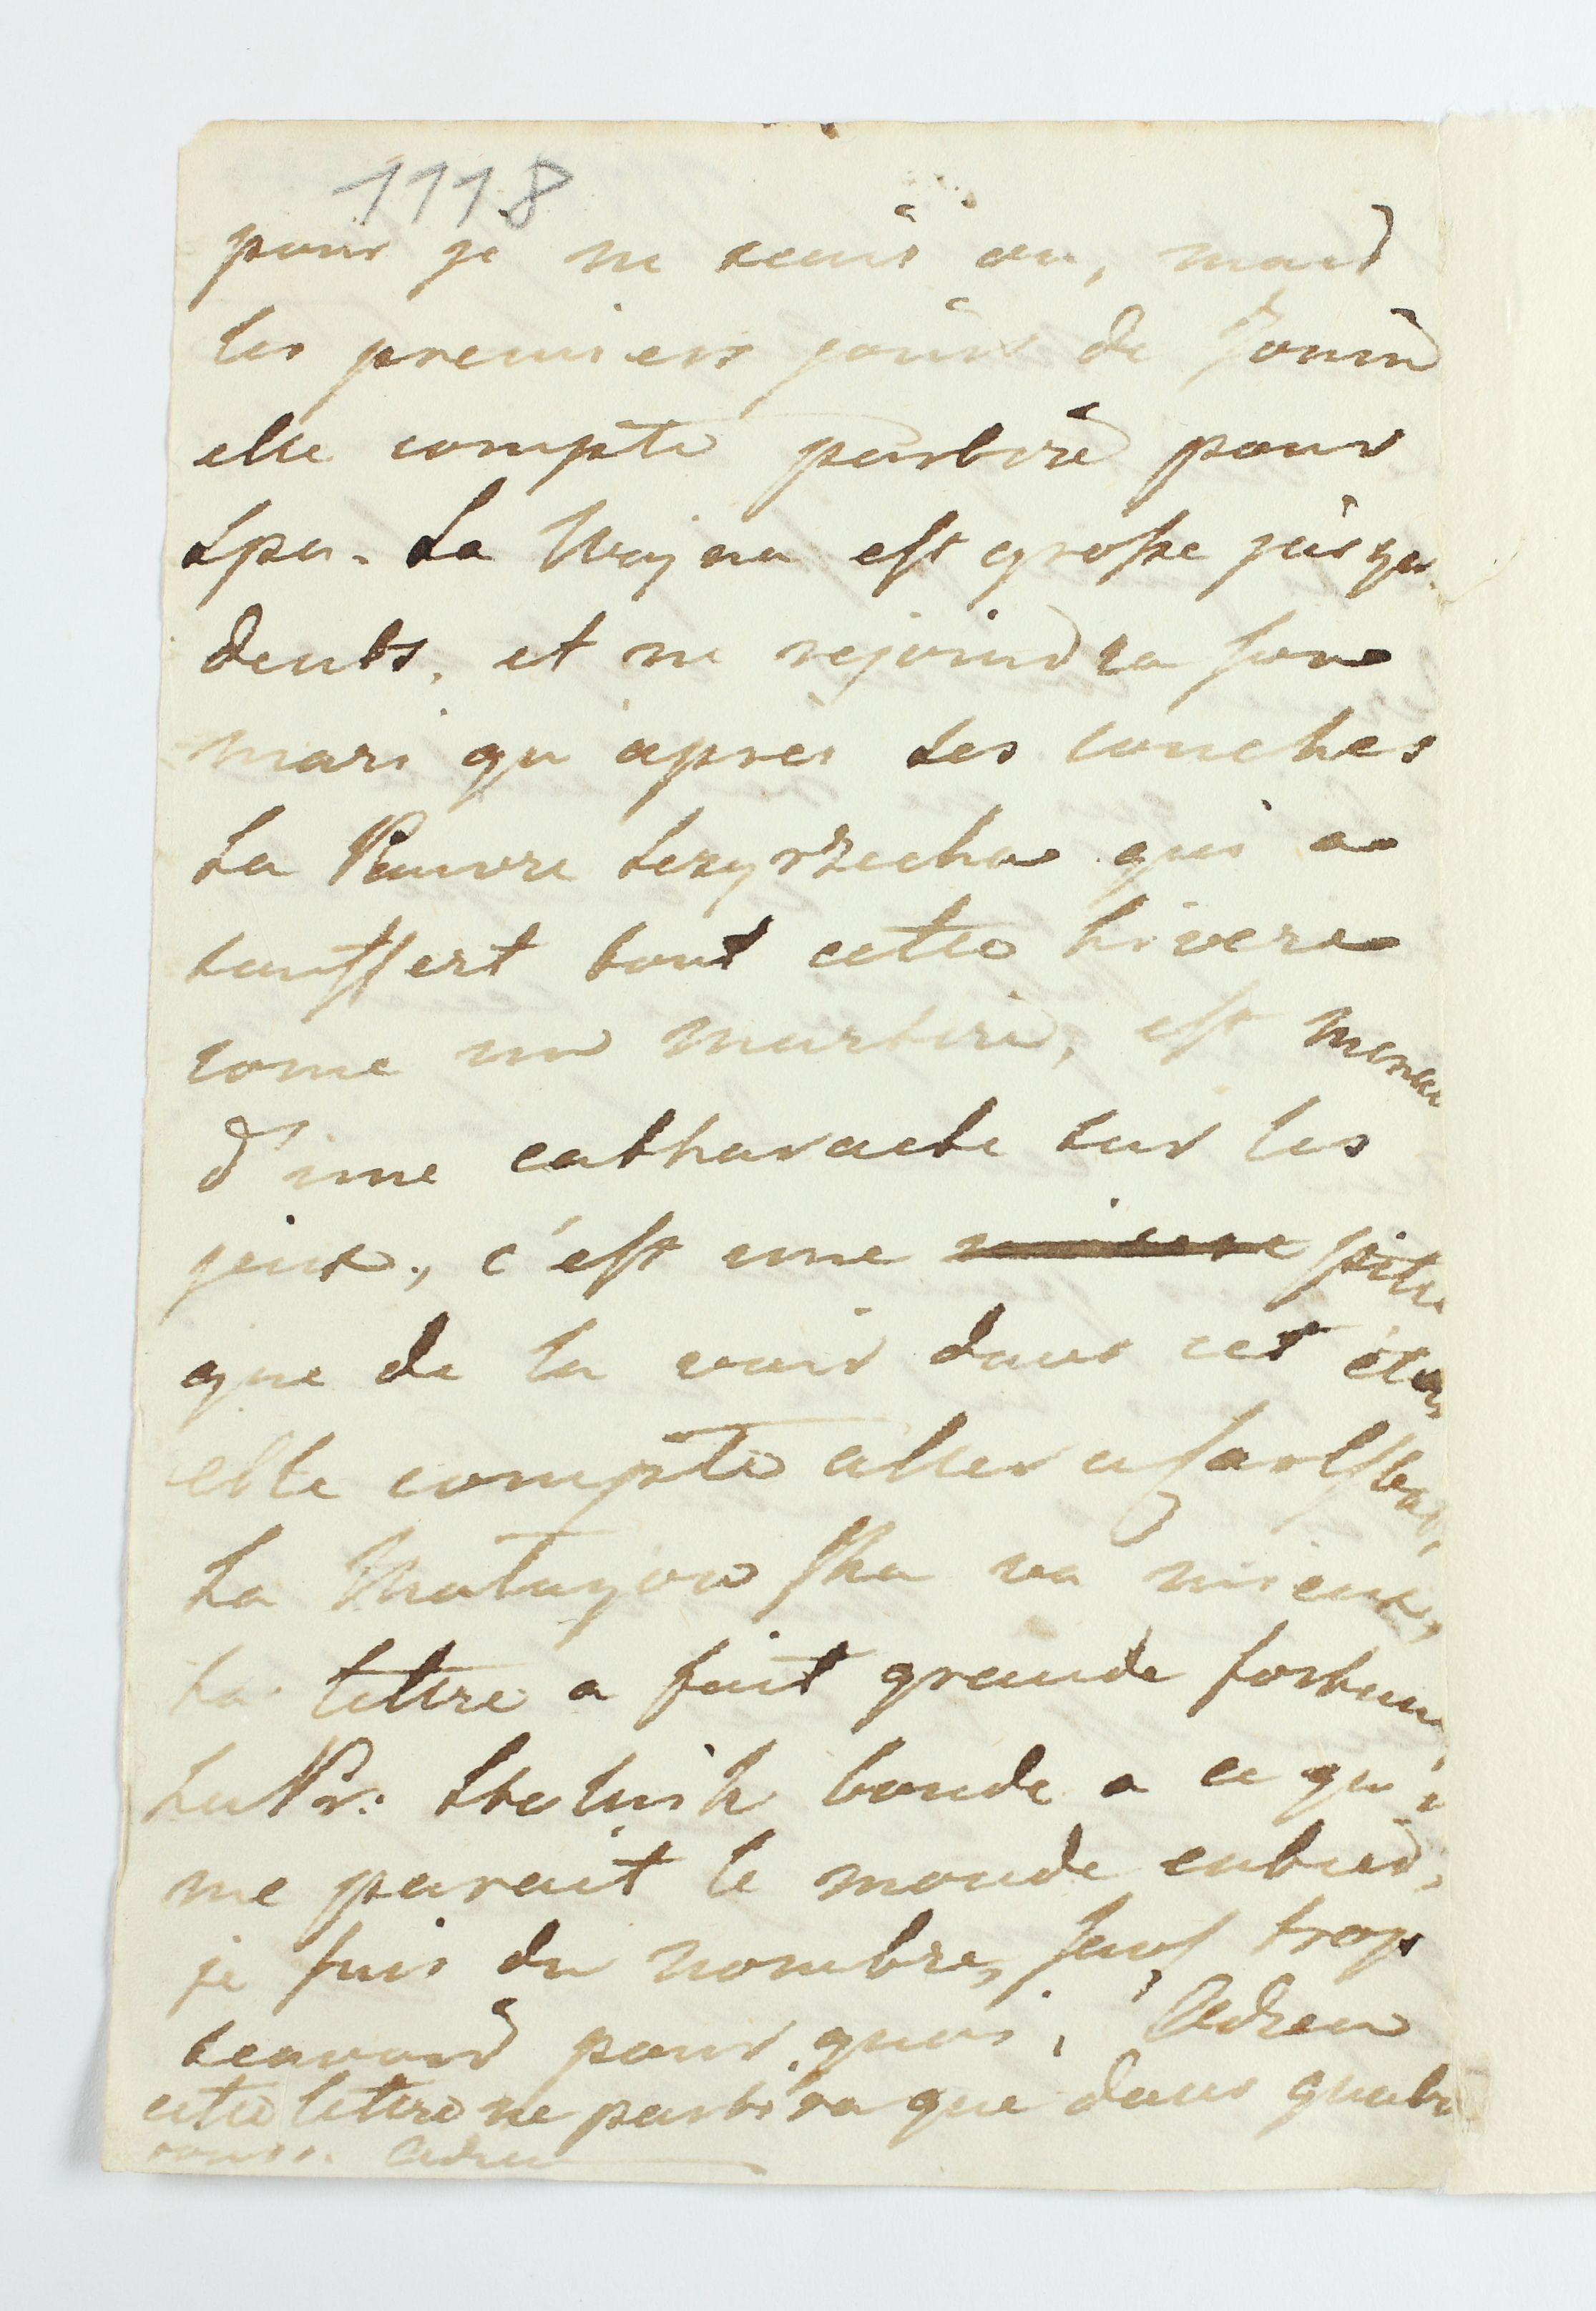 1118
pour je ne scais ou, mais
les premiers jours de Jouin
elle compte partire pour
Spa. La Wojna est grosse jusqu
dents, et ne rejoindra son
mari qu'apres ses couches
La Pauvre Sczyrzecha qui a
souffert tout cette hivere
come un martire, est mena
d'une catharacte sur les
jeux, c'est une pitie
que de la voir dans cet etat
elle compte aller a Carlsbad,
La Matuzowska va mieux,
ta lettre a fait grande fortune
La Pr: boude a ce qu'i
me parait le monde entier,
je suis du nombre, sans trop
scavoir pour quoi, Adieu
cette lettre ne partira que dans quatr
jours. Adieu